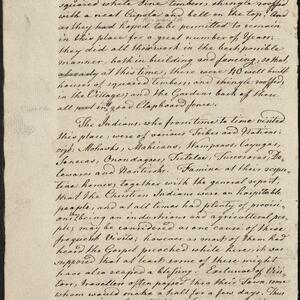 squared white Pine timbers, shingle roofed
with a neat Cupola and bell on the top. And
as they had hoped to be permitted to remain
in this place for a great number of Years,
they did all this work in the best possible
manner, both in building and fencing, so that
already at this time, there were 40 well built
houses of squared timbers, and shingle roofed
in the Village, and the Gardens back of them
all put in good Clapboard fence.
The Indians who from time to time visited
this place, were of various Tribes and Nations
viz: Mohawks, Mahicans, Wampanos, Cayugas,
Senecas, Onondagoes, Tutelas, Tuscaroras, De-
lawares and Nanticoks. Famine at their respec-
tive homes, together with the general report,
that the Christian Indians were an hospitable
people, and at all times had plenty of provisi-
ons, being an industrious and agricultural peo-
ple, may be considered as one cause of these
frequent Visits, however as most of them had
heard the Gospel preached while here, it is
supposed that at least some of them might
have also reaped a blessing.
travellers often passed thro this Town, some
whom would make a halt for a few days. Thus